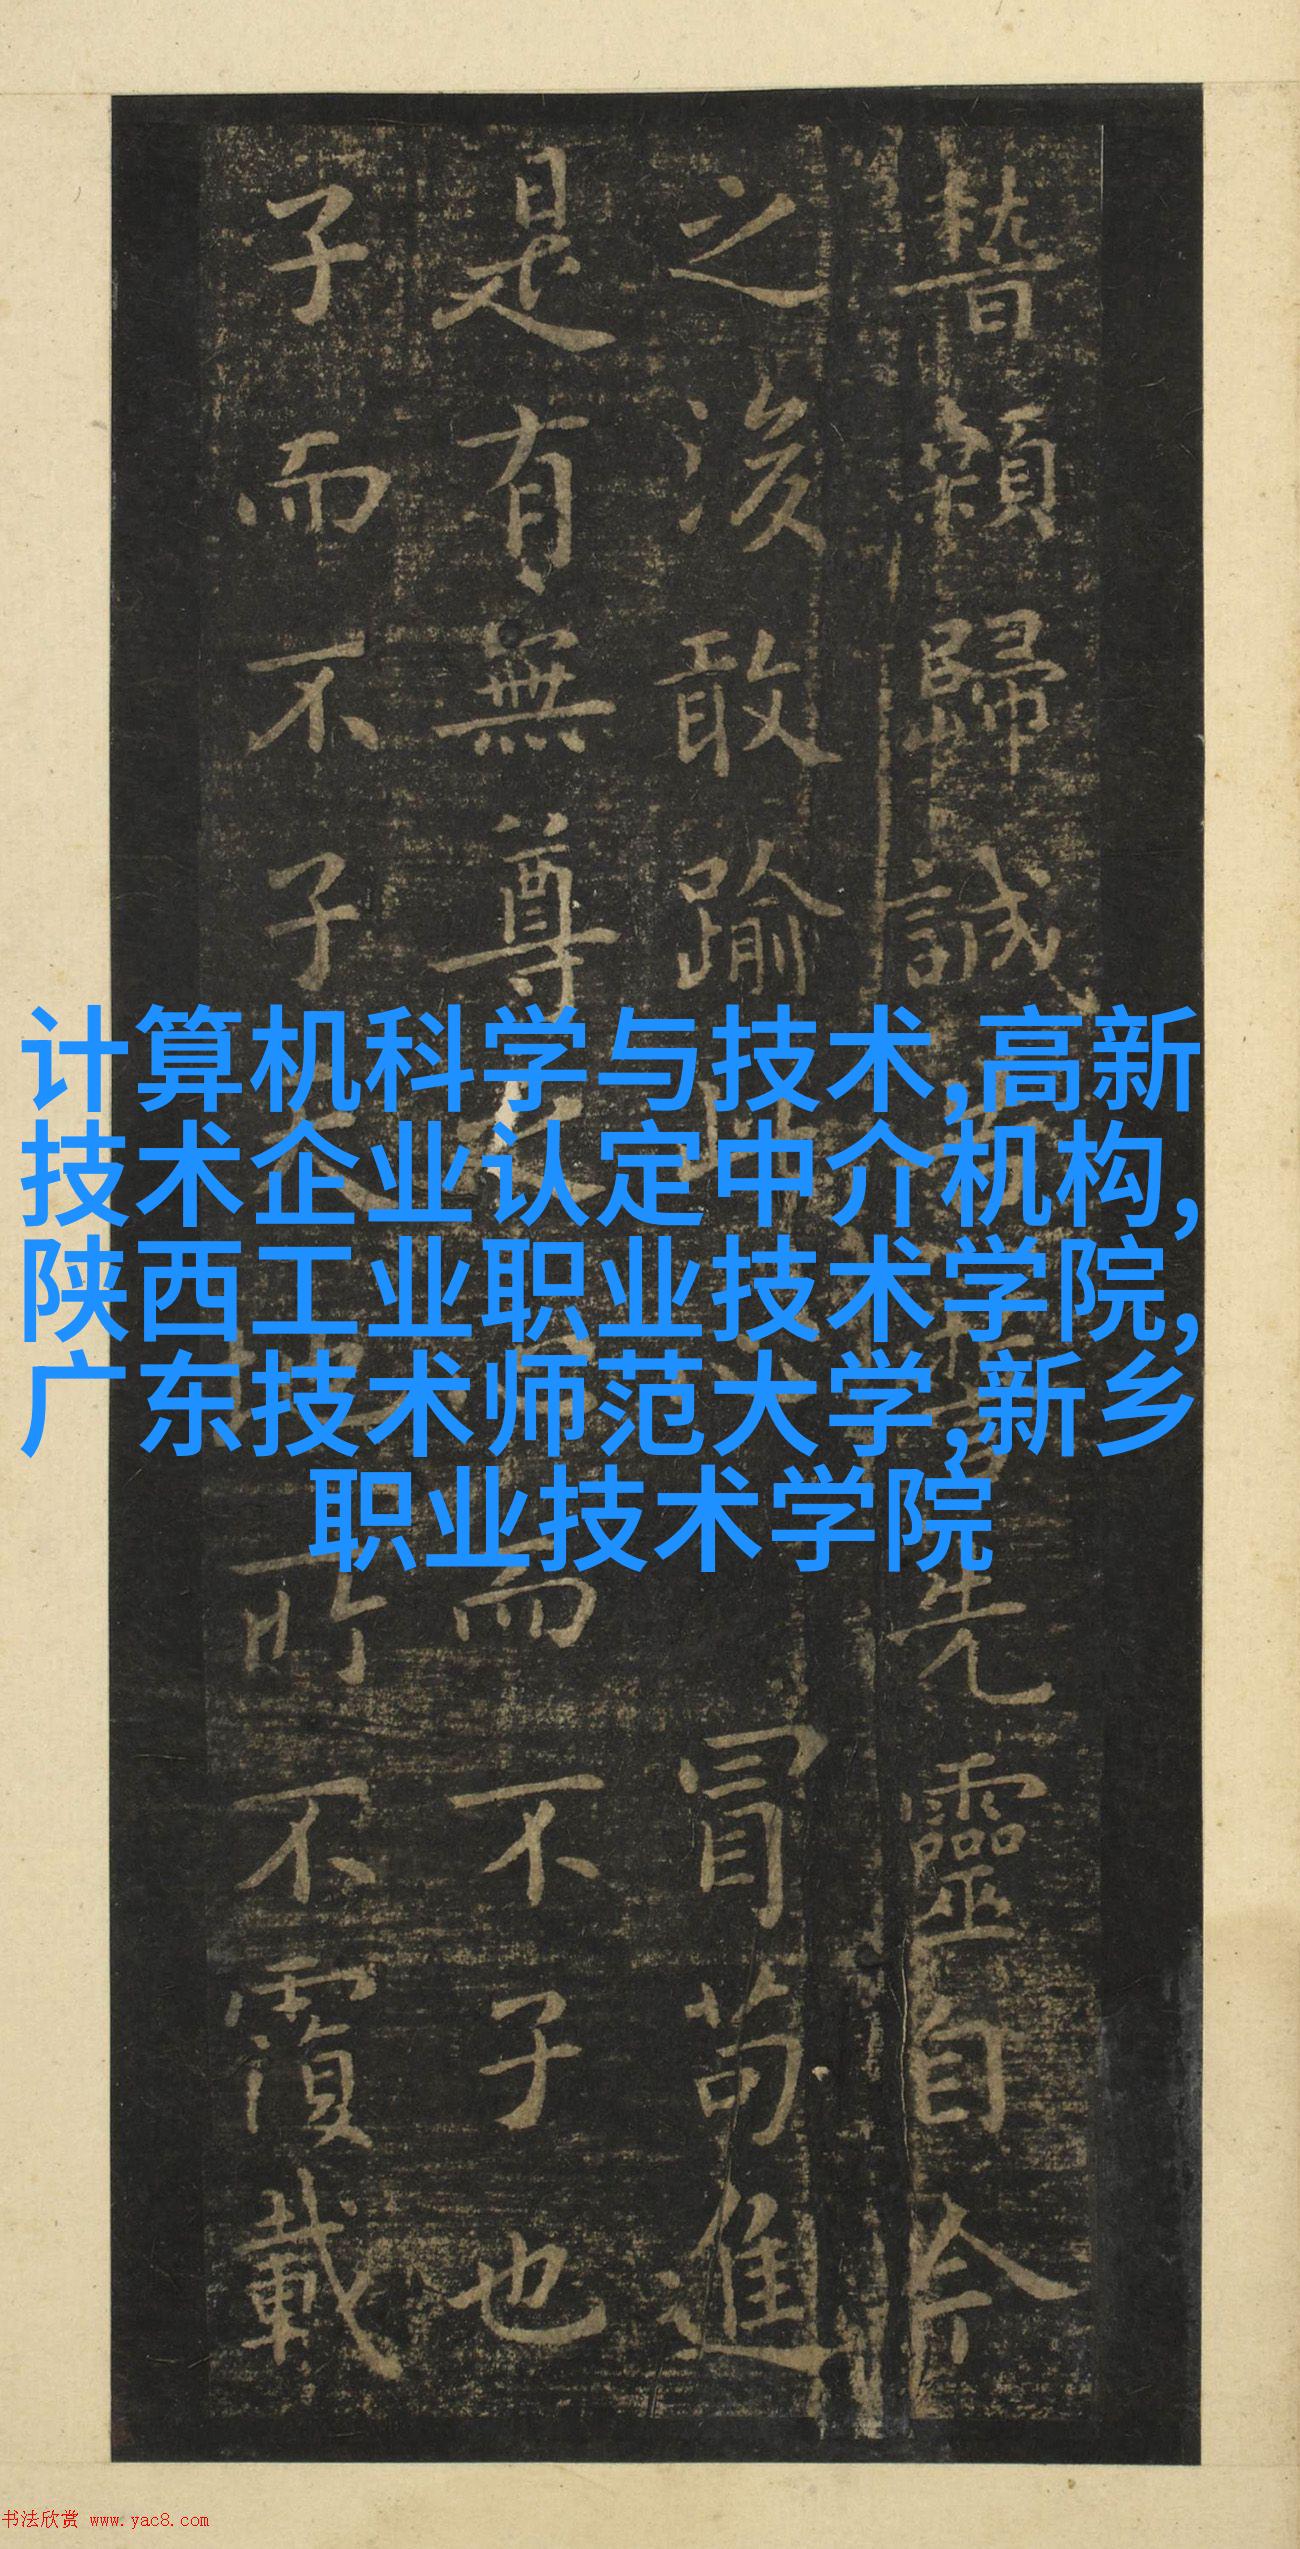 稽顙歸誠先靈自今
之後敢踰此冒苟進
是有無尊之而不子也
子而不子天所不覆載
计算机科学与技术,高新
技术企业认定中介机构,
陕西工业职业技术学院,
广东技术师范大学,新乡
职业技术学院
书法欣赏 www.yac8.com